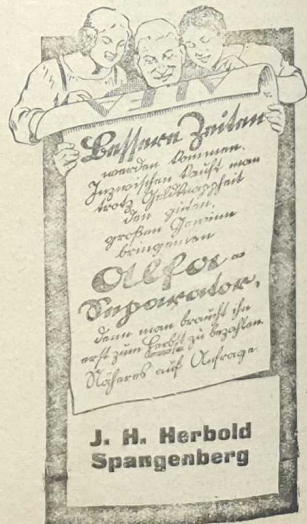 Bessere Zeiten
werden kommen.
Inzwischen kauft man
trotz Geldknappheit
den guten,
großen Gewinn
bringenden
Alfa-
Separator,
denn man braucht ihn
erst zum Herbst zu bezahlen.
Näheres auf Anfrage
J. H. Herbold
Spangenberg